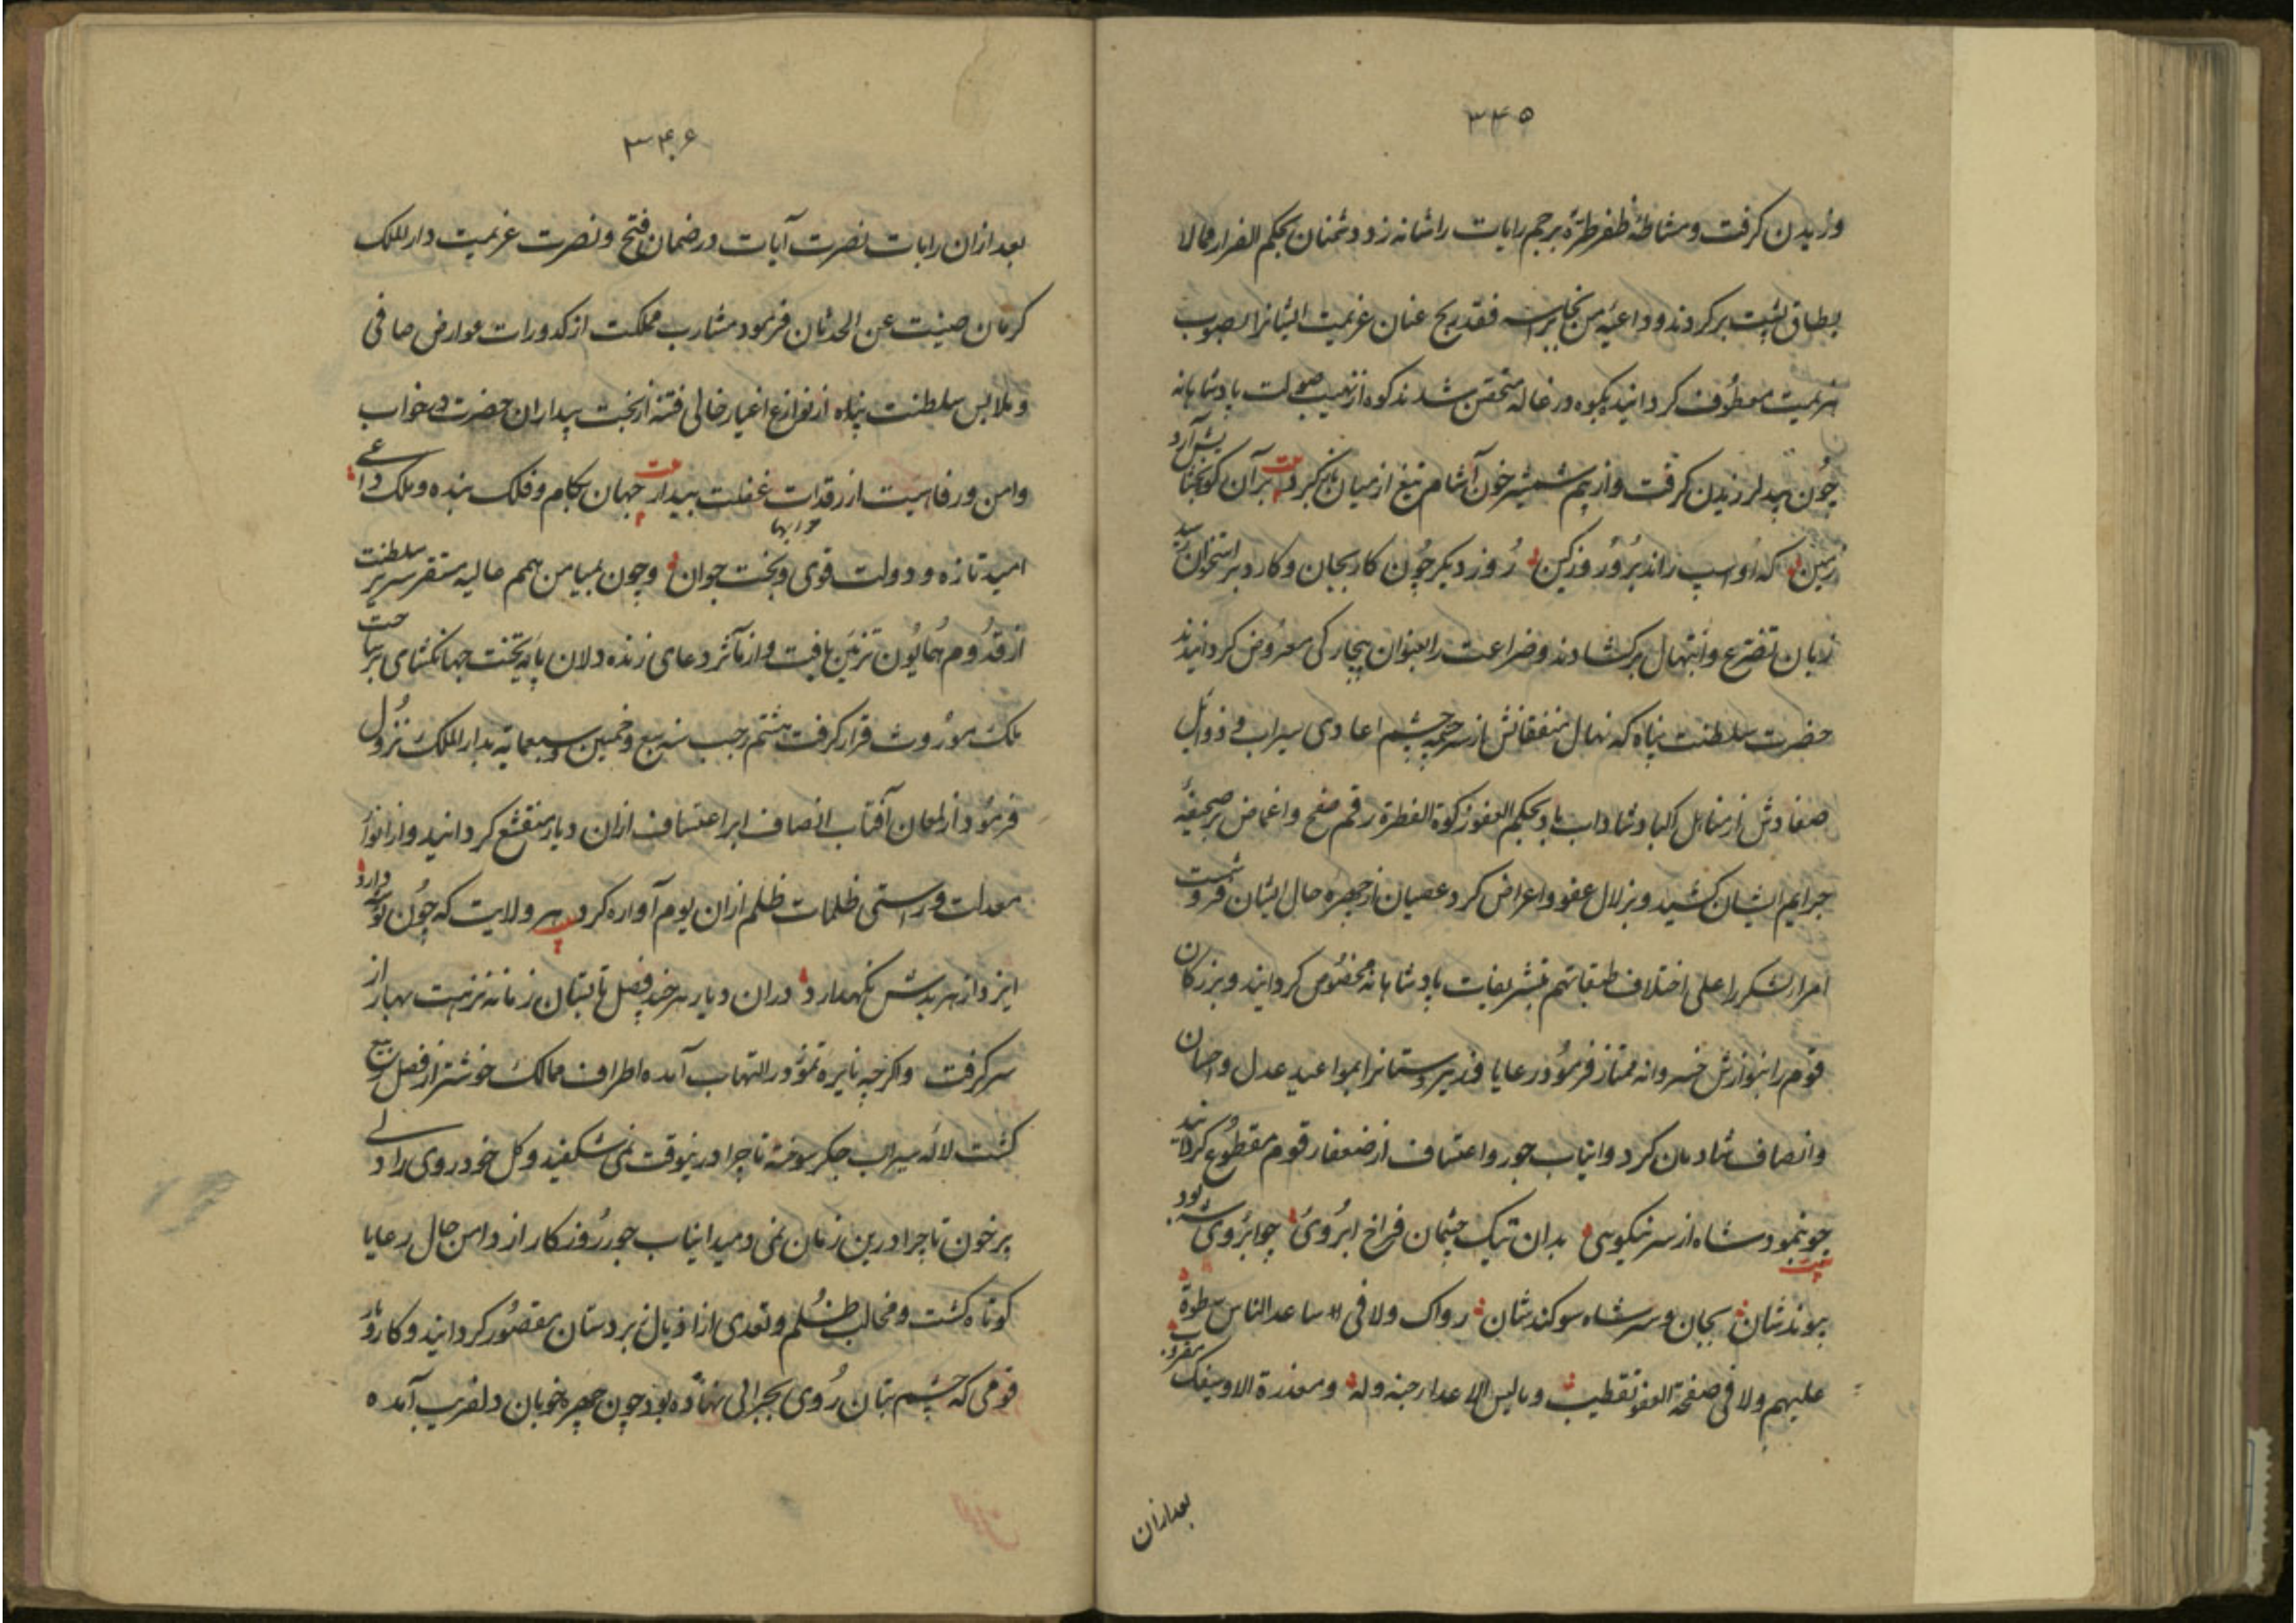 ۳۴۵
وزیدن کرفت و مشاطهٔ ظفر طرّهٔ پرچم رایات را شانه زد و دشمنان بحکم الفرار مما لا
یطاق پشت برکردند و داعیه من نجا براسه فقد ربح عنان عزیمت ایشانرا بصوب
هزیمت معطوف کردانید بکوه درغاله متحصن شدند کوه از نهیب صولت پادشاهانه
چون بید لرزیدن کرفت و از بیم شمشیر خون آشام تیغ از میان بر آن کوه
زمین که او اسپ راند بروز کین روز دیکر چون کار بجان و کارد براستخوان رسید
زبان تضرع و ابتهال برکشادند و ضراعت را بعنوان بیچارکی معروض کردانیدند
حضرت سلطنت پناه که نهال از سرچشمه چشم اعادی سیراب و ذوابل
از مناهل اکباد شاداب باد بحکم العفو زکوة الظفر رقم صفح و اغماض بر صحیفهٔ
جرایم ایشان کشید و بزلال عفو و اعراض کرد عصیان از چهره حال ایشان فرو شست
امراء لشکر را علی اختلاف طبقاتهم بتشریفات پادشاهانه مخصوص کردانید و بزرکان
قوم را بنوازش خسروانه ممتاز فرمود رعایا و زیردستانرا بمواعید عدل و احسان
و انصاف شادمان کرد و انیاب جور و اعتساف از ضعفاء قوم مقطوع کردانید
چو بنمود شاه از سر نیکوی بدان تنک چشمان فراخ ابروی چو ابروی شه بود
پیوندشان بجان و سر شاه سوکندشان رواک ولا فی ساعد الناس سطوة
علیهم ولا فی صفحة العفو تقطیب و مالیس الاعداء جنة وله و معذرة الا وسیفک
بعد ازان
۳۴۶
بعد ازان رایات نصرت آیات در ضمان فتح و نصرت عزیمت دار الملک
کرمان صینت عن الحدثان فرمود مشارب مملکت از کدورات عوارض صافی
و ملابس سلطنت پناه از نوازع اغیار خالی فتنه از بخت بیداران حضرت در خواب
و امن و رفاهیت از رقدات غفلت بیدار جهان بکام و فلک بنده و ملک داعی
امید تازه و دولت قوی و بخت جوان و چون بمیامن همم عالیه مستقر سریر سلطنت
از قدوم همایون تزیین یافت و از مآثر دعای زنده دلان پایهٔ تخت جهانکشای بر ساحت
ملک موروث قرار کرفت هشتم رجب سنه سبع و خمسین و سبعمایه بدار الملک نزول
فرمود از لمعان آفتاب انصاف ابر اعتساف ازان دیار منقشع کردانید و از انوار
معدلت و راستی ظلمات ظلم ازان بوم آواره کرد هر ولایت که چون تو شه دارد
ایزد از هر بدش نکهدارد دران دیار هر چند فصل تابستان زمانه نزهت بهار از
سر کرفت و اکرچه نایره تموز در التهاب آمده اطراف ممالک خوشتر از فصل ربیع
کشت لاله سیراب جکر سوخته تا چرا درینوقت نمی شکفید و کل خودروی را دلی
پرخون تا چرا درین زمان نمی دمید انیاب جور روزکار از دامن حال رعایا
کوتاه کشت و مخالب ظلم و تعدی از اذیال زیردستان مقصور کردانید و کار و
قومی که چشم بتان روی بخرابی نهاده بود چون چهره خوبان دلفریب آمده